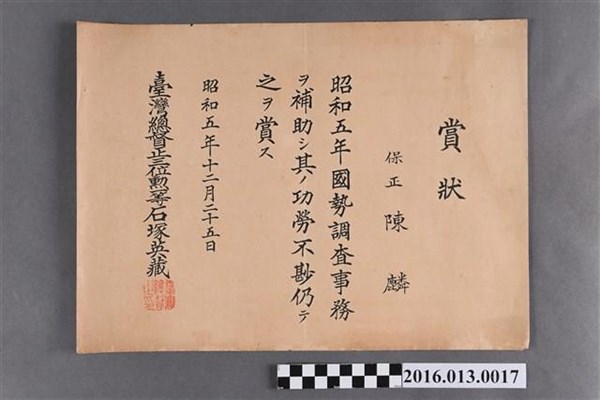 賞狀
保正 陳麟
昭和五年國勢調査事務
ヲ補助シ其ノ功勞不尠仍テ
之ヲ賞ス
昭和五年十二月二十五日
臺灣總督正三位勲一等石塚英藏
2016.013.0017